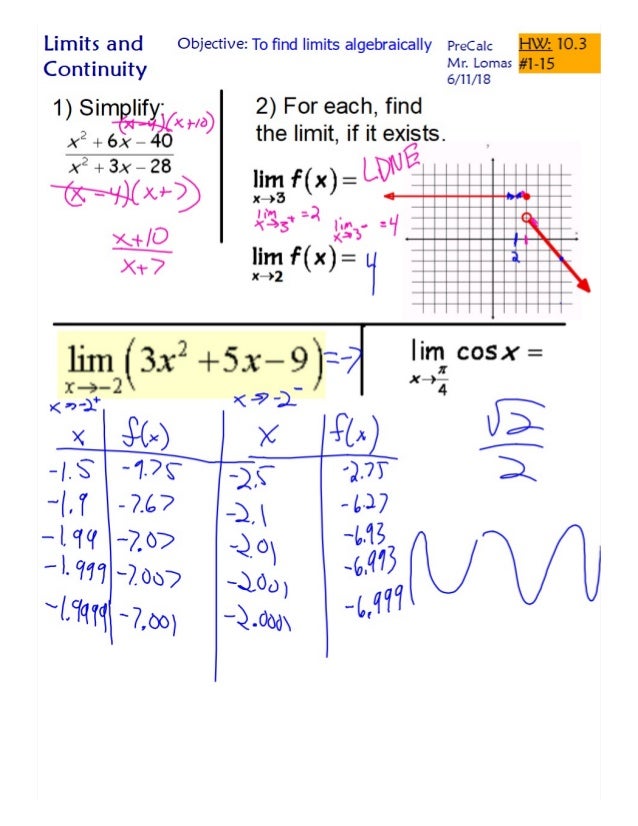 Limits and Continuity
Objective: To find limits algebraically
PreCalc
Mr. Lomas
6/11/18
HW: 10.3
#1-15
1) Simplify:
(x-4)(x+10)
x² + 6x – 40
x² + 3x – 28
(x-4)(x+7)
x+10
x+7
2) For each, find
the limit, if it exists.
lim f(x)= LDNE
x→3
lim x→3⁺ =2
lim x→3⁻ =4
lim f(x)= 4
x→2
1
2
lim (3x² +5x–9) =-7
x→-2
lim cos x =
x→π/4
√2
2
x→-2⁺
x→-2⁻
x f(x) x f(x)
-1.5 -9.75 -2.5 -2.75
-1.9 -7.67 -2.1 -6.27
-1.99 -7.07 -2.01 -6.93
-1.999 -7.007 -2.001 -6.993
-1.9999 -7.001 -2.0001 -6.999